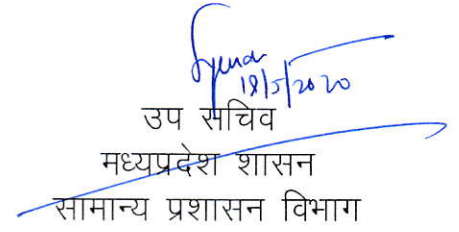 18/5/2020
उप सचिव
मध्यप्रदेश शासन
सामान्य प्रशासन विभाग